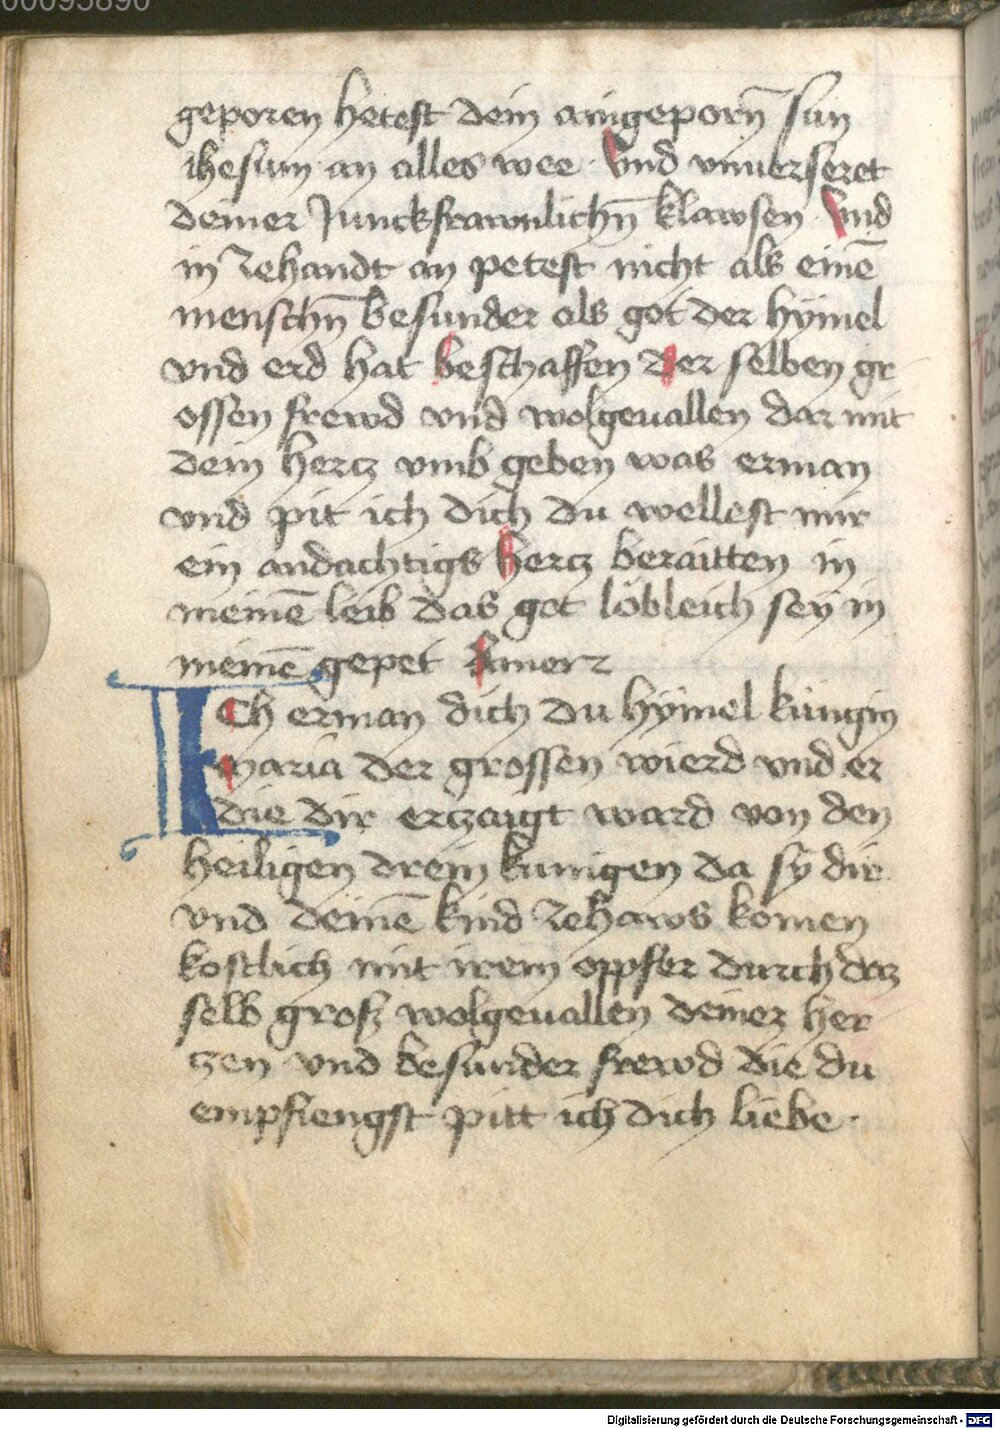 00095890
geporen hetest dein aingeporn̄ sun
ihesum an alles wee · Vnd vnuerseret
deiner Junckfrawnlichn̄ klawsen · Vnd
in zehandt an petest nicht als einē
menschn̄ besunder als got der hÿmel
vnd erd hat beschaffen Der selben gr
ossen frewd vnd wolgeuallen dar mit
dein hertz vmb geben was erman
vnd pit ich dich du wellest mir
ein andachtigs hertz beraitten in
meinē leib das got löbleich seÿ in
meinē gepet Amen
ICh erman dich du hÿmel künigin
Maria der grossen wierd vnd er
die dir ertzaigt ward von den
heiligen drein kunigen da sÿ dir
vnd deinē kind zehaws komen
kostlich mit irem oppfer durch daz
selb groß wolgeuallen deinez her
tzen vnd besunder frewd die du
empfiengst pitt ich dich liebe ·
Digitalisierung gefördert durch die Deutsche Forschungsgemeinschaft - DFG